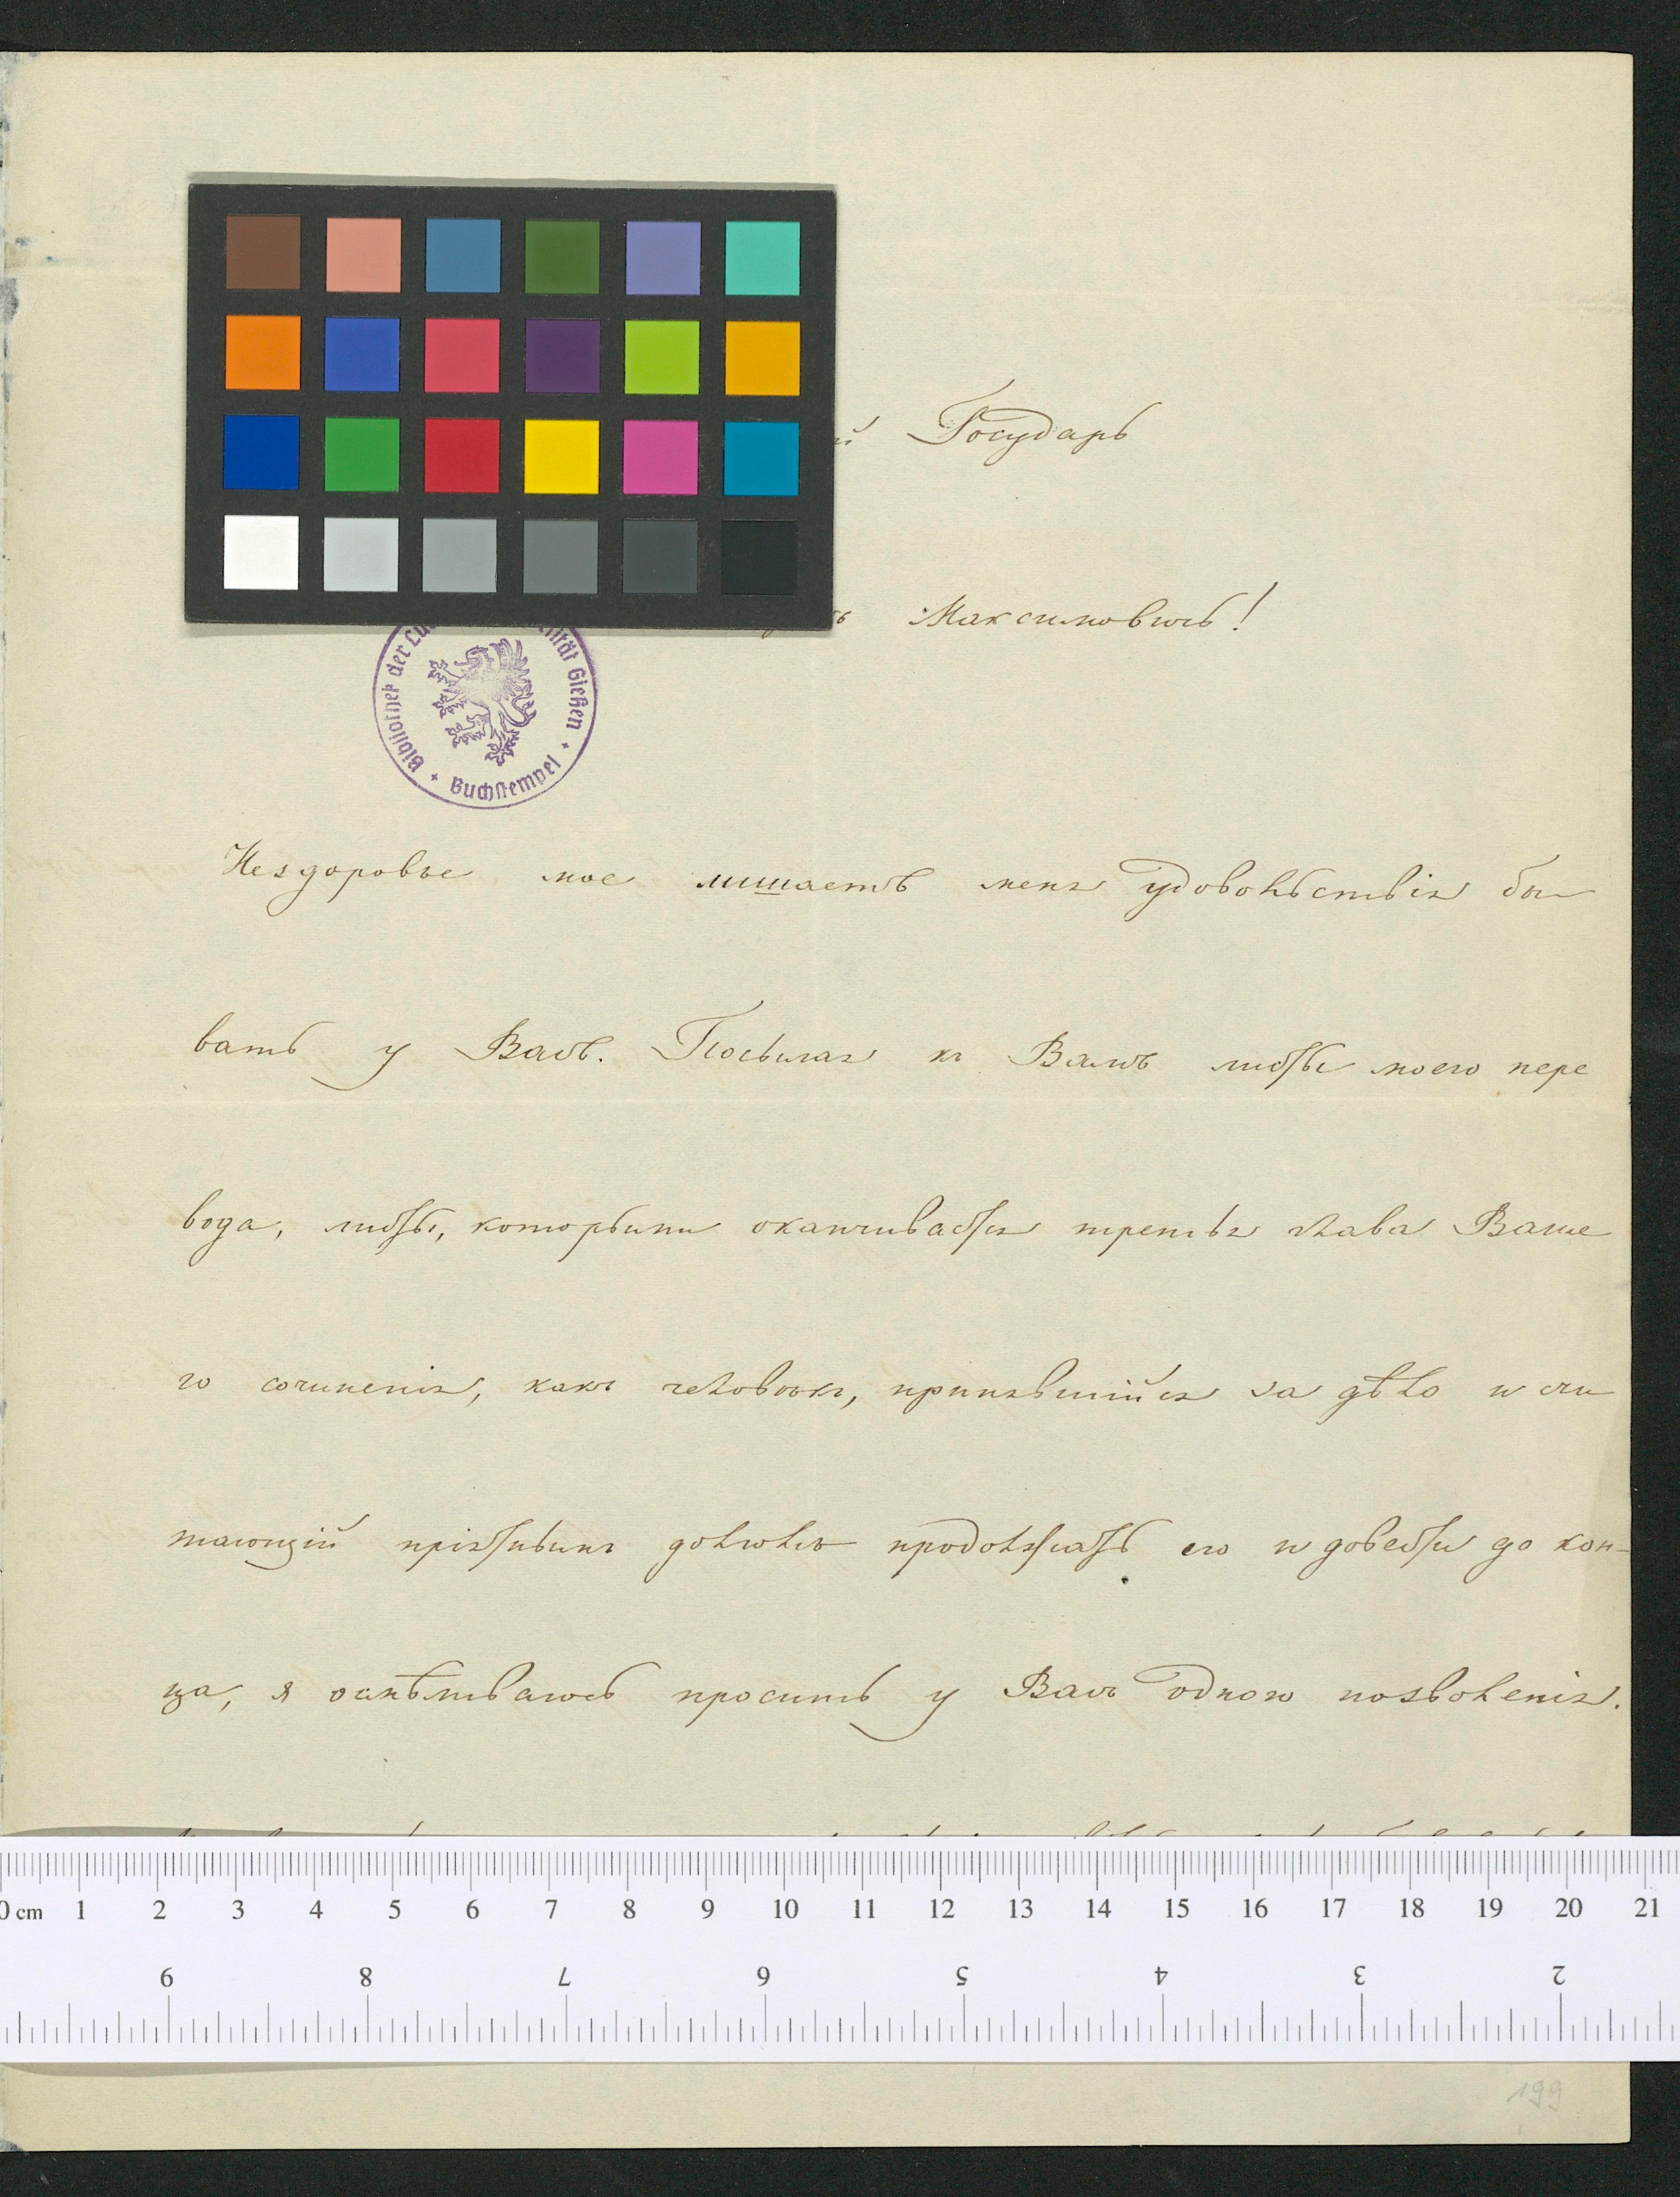 Государь
Максимовичъ!
Bibliothek der
Gießen
Buchstempel
Нездоровье мое лишаетъ меня удовольствія бы
вать у Васъ. Посылая къ Вамъ листы моего пере
вода, листы, которыми оканчивается третья глава Ваше
го сочиненія, какъ человѣкъ, принявшійся за дѣло и счи
тающій пріятнымъ долгомъ продолжать его и довести до кон-
ца, я осмѣливаюсь просить у Васъ одного позволенія.
0 cm 1 2 3 4 5 6 7 8 9 10 11 12 13 14 15 16 17 18 19 20 21
9 8 7 6 5 4 3 2
199